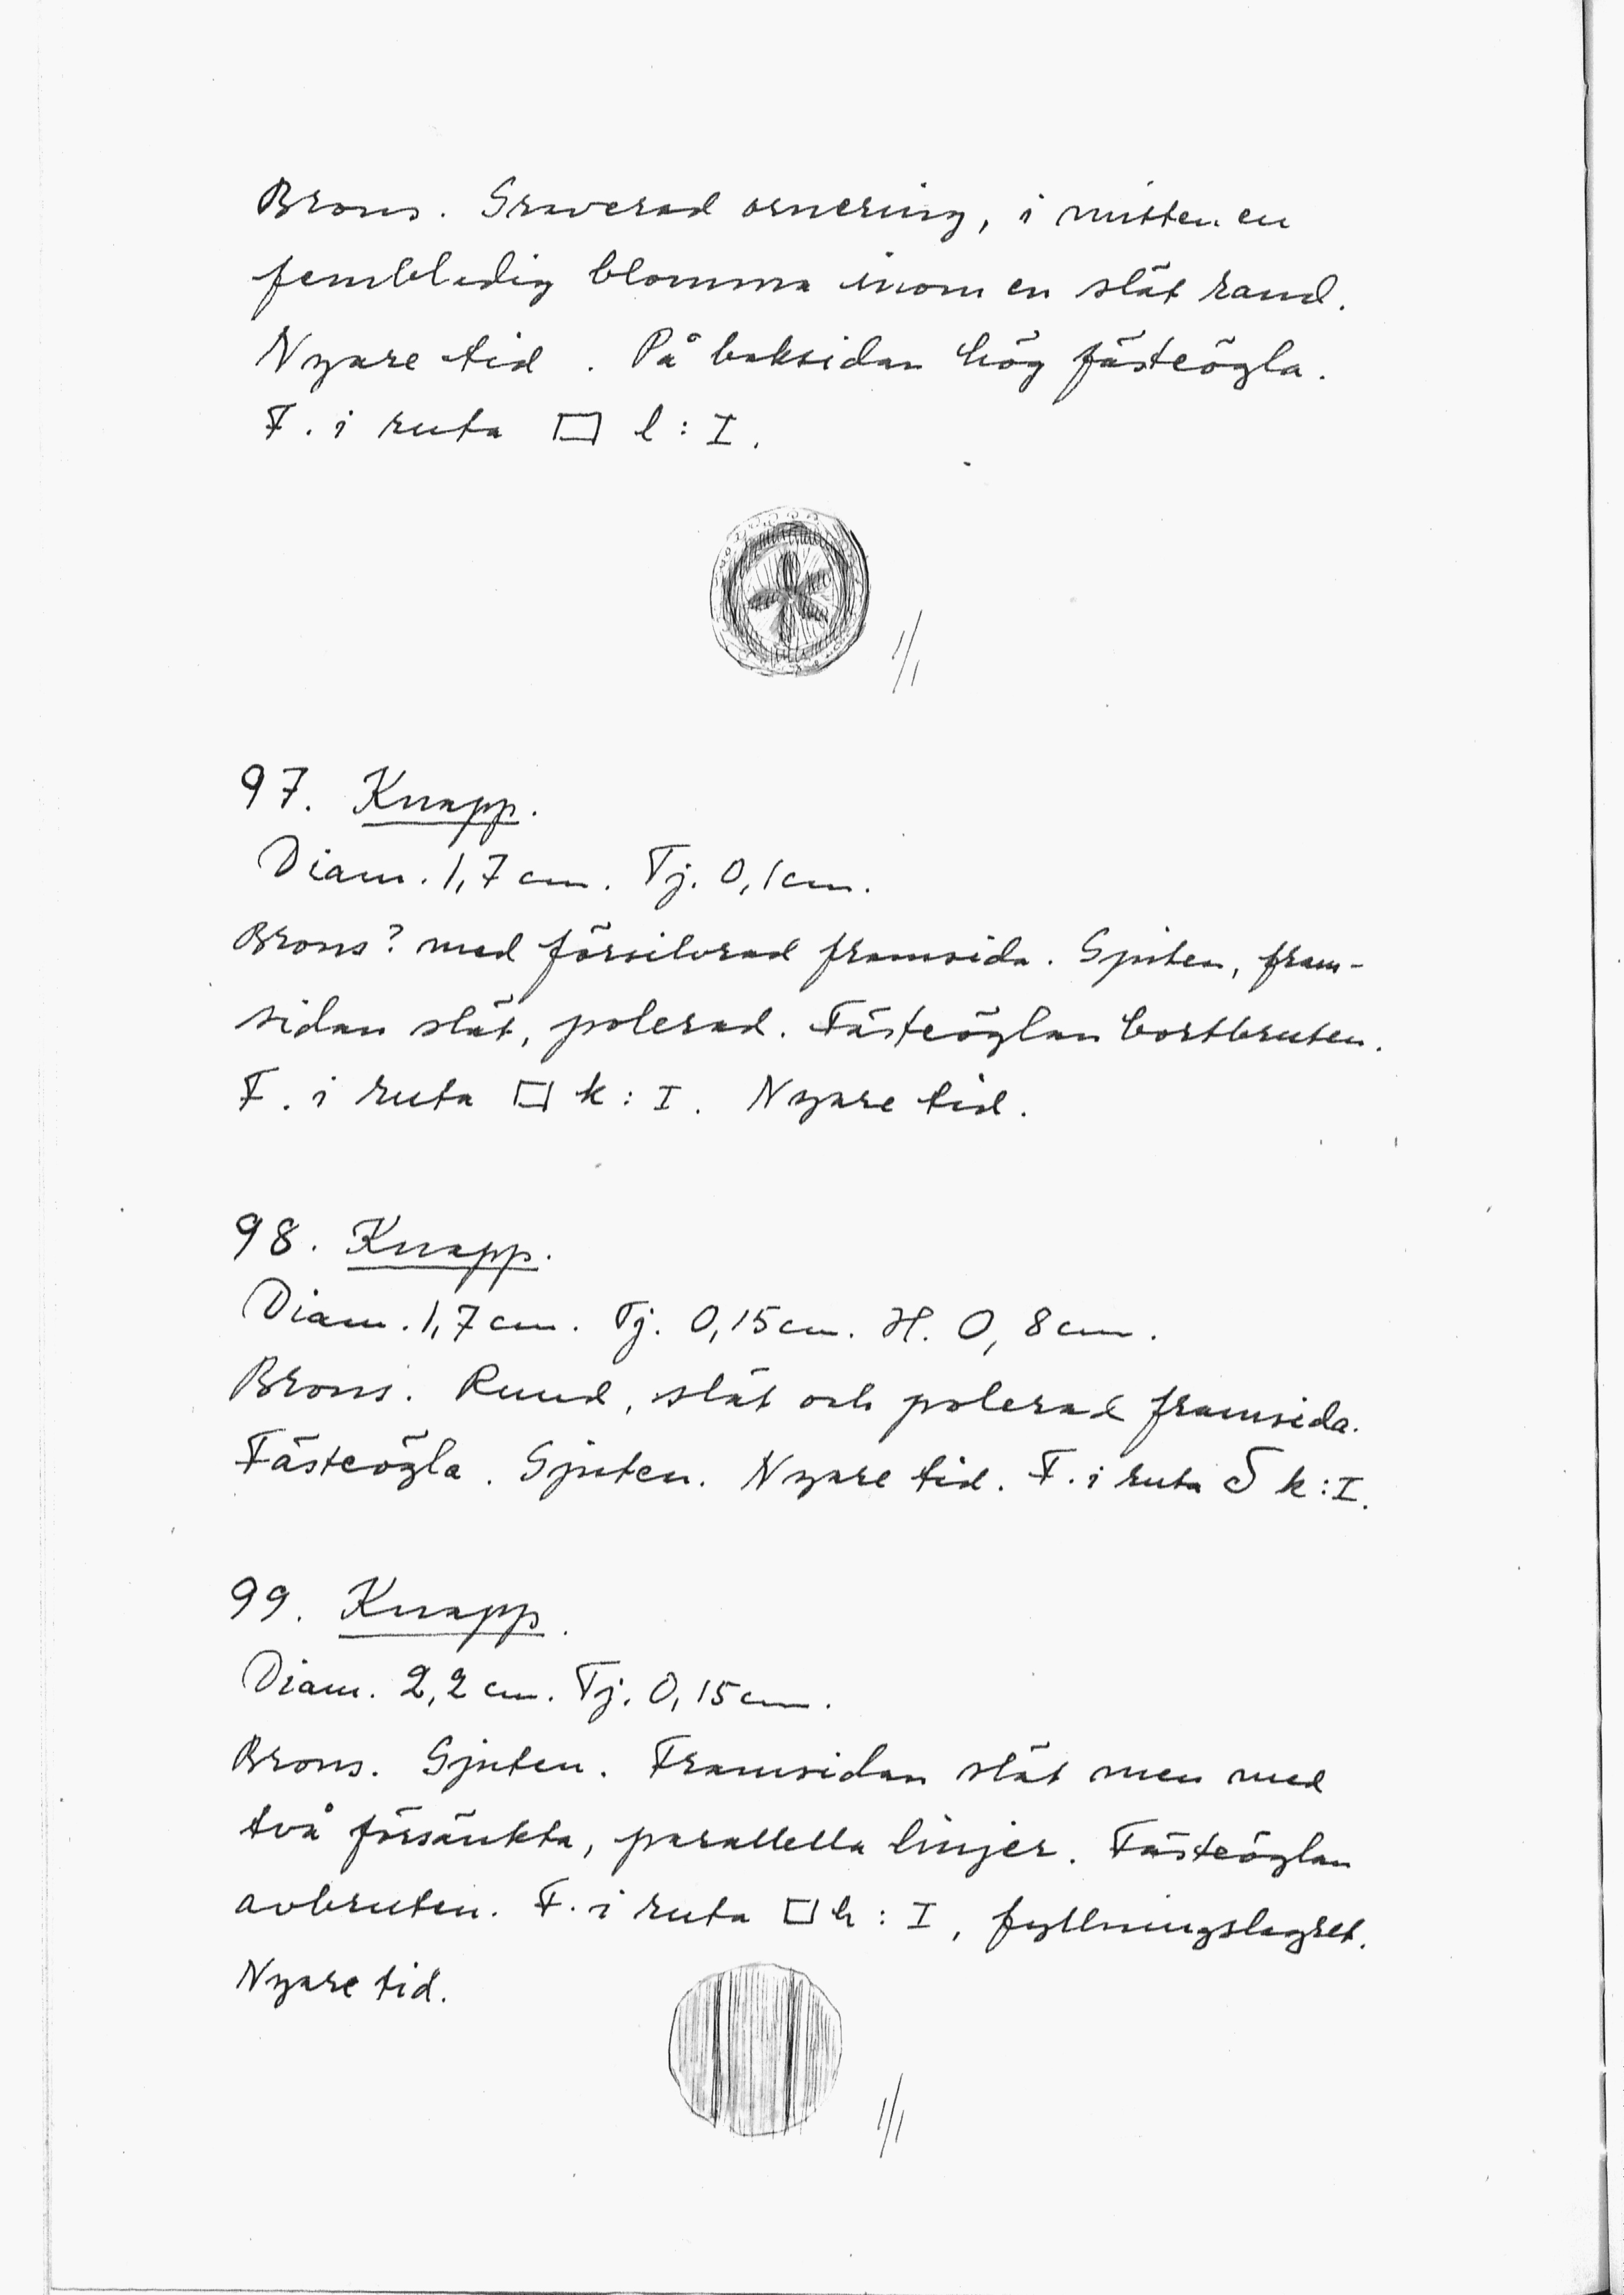 Brons. Graverad ornering, i mitten en
fembladig blomma inom en slät rand.
Nyare tid. På baksidan hög fästeögla.
F. i ruta □ l : I.
1/1
97. Knapp.
Diam. 1,7 cm. Tj. 0,1 cm.
Brons? med försilvrad framsida. Gjuten, fram-
sidan slät, polerad. Fästeöglan bortbruten.
F. i ruta □ k : I. Nyare tid.
98. Knapp.
Diam. 1,7 cm. Tj. 0,15 cm. H. 0,8 cm.
Brons. Rund, slät och polerad framsida.
Fästeögla. Gjuten. Nyare tid. F. i ruta k : I.
99. Knapp.
Diam. 2,2 cm. Tj. 0,15 cm.
Brons. Gjuten. Framsidan slät men med
två försänkta, parallella linjer. Fästeöglan
avbruten. F. i ruta □ h : I, fyllningslagret.
Nyare tid.
1/1